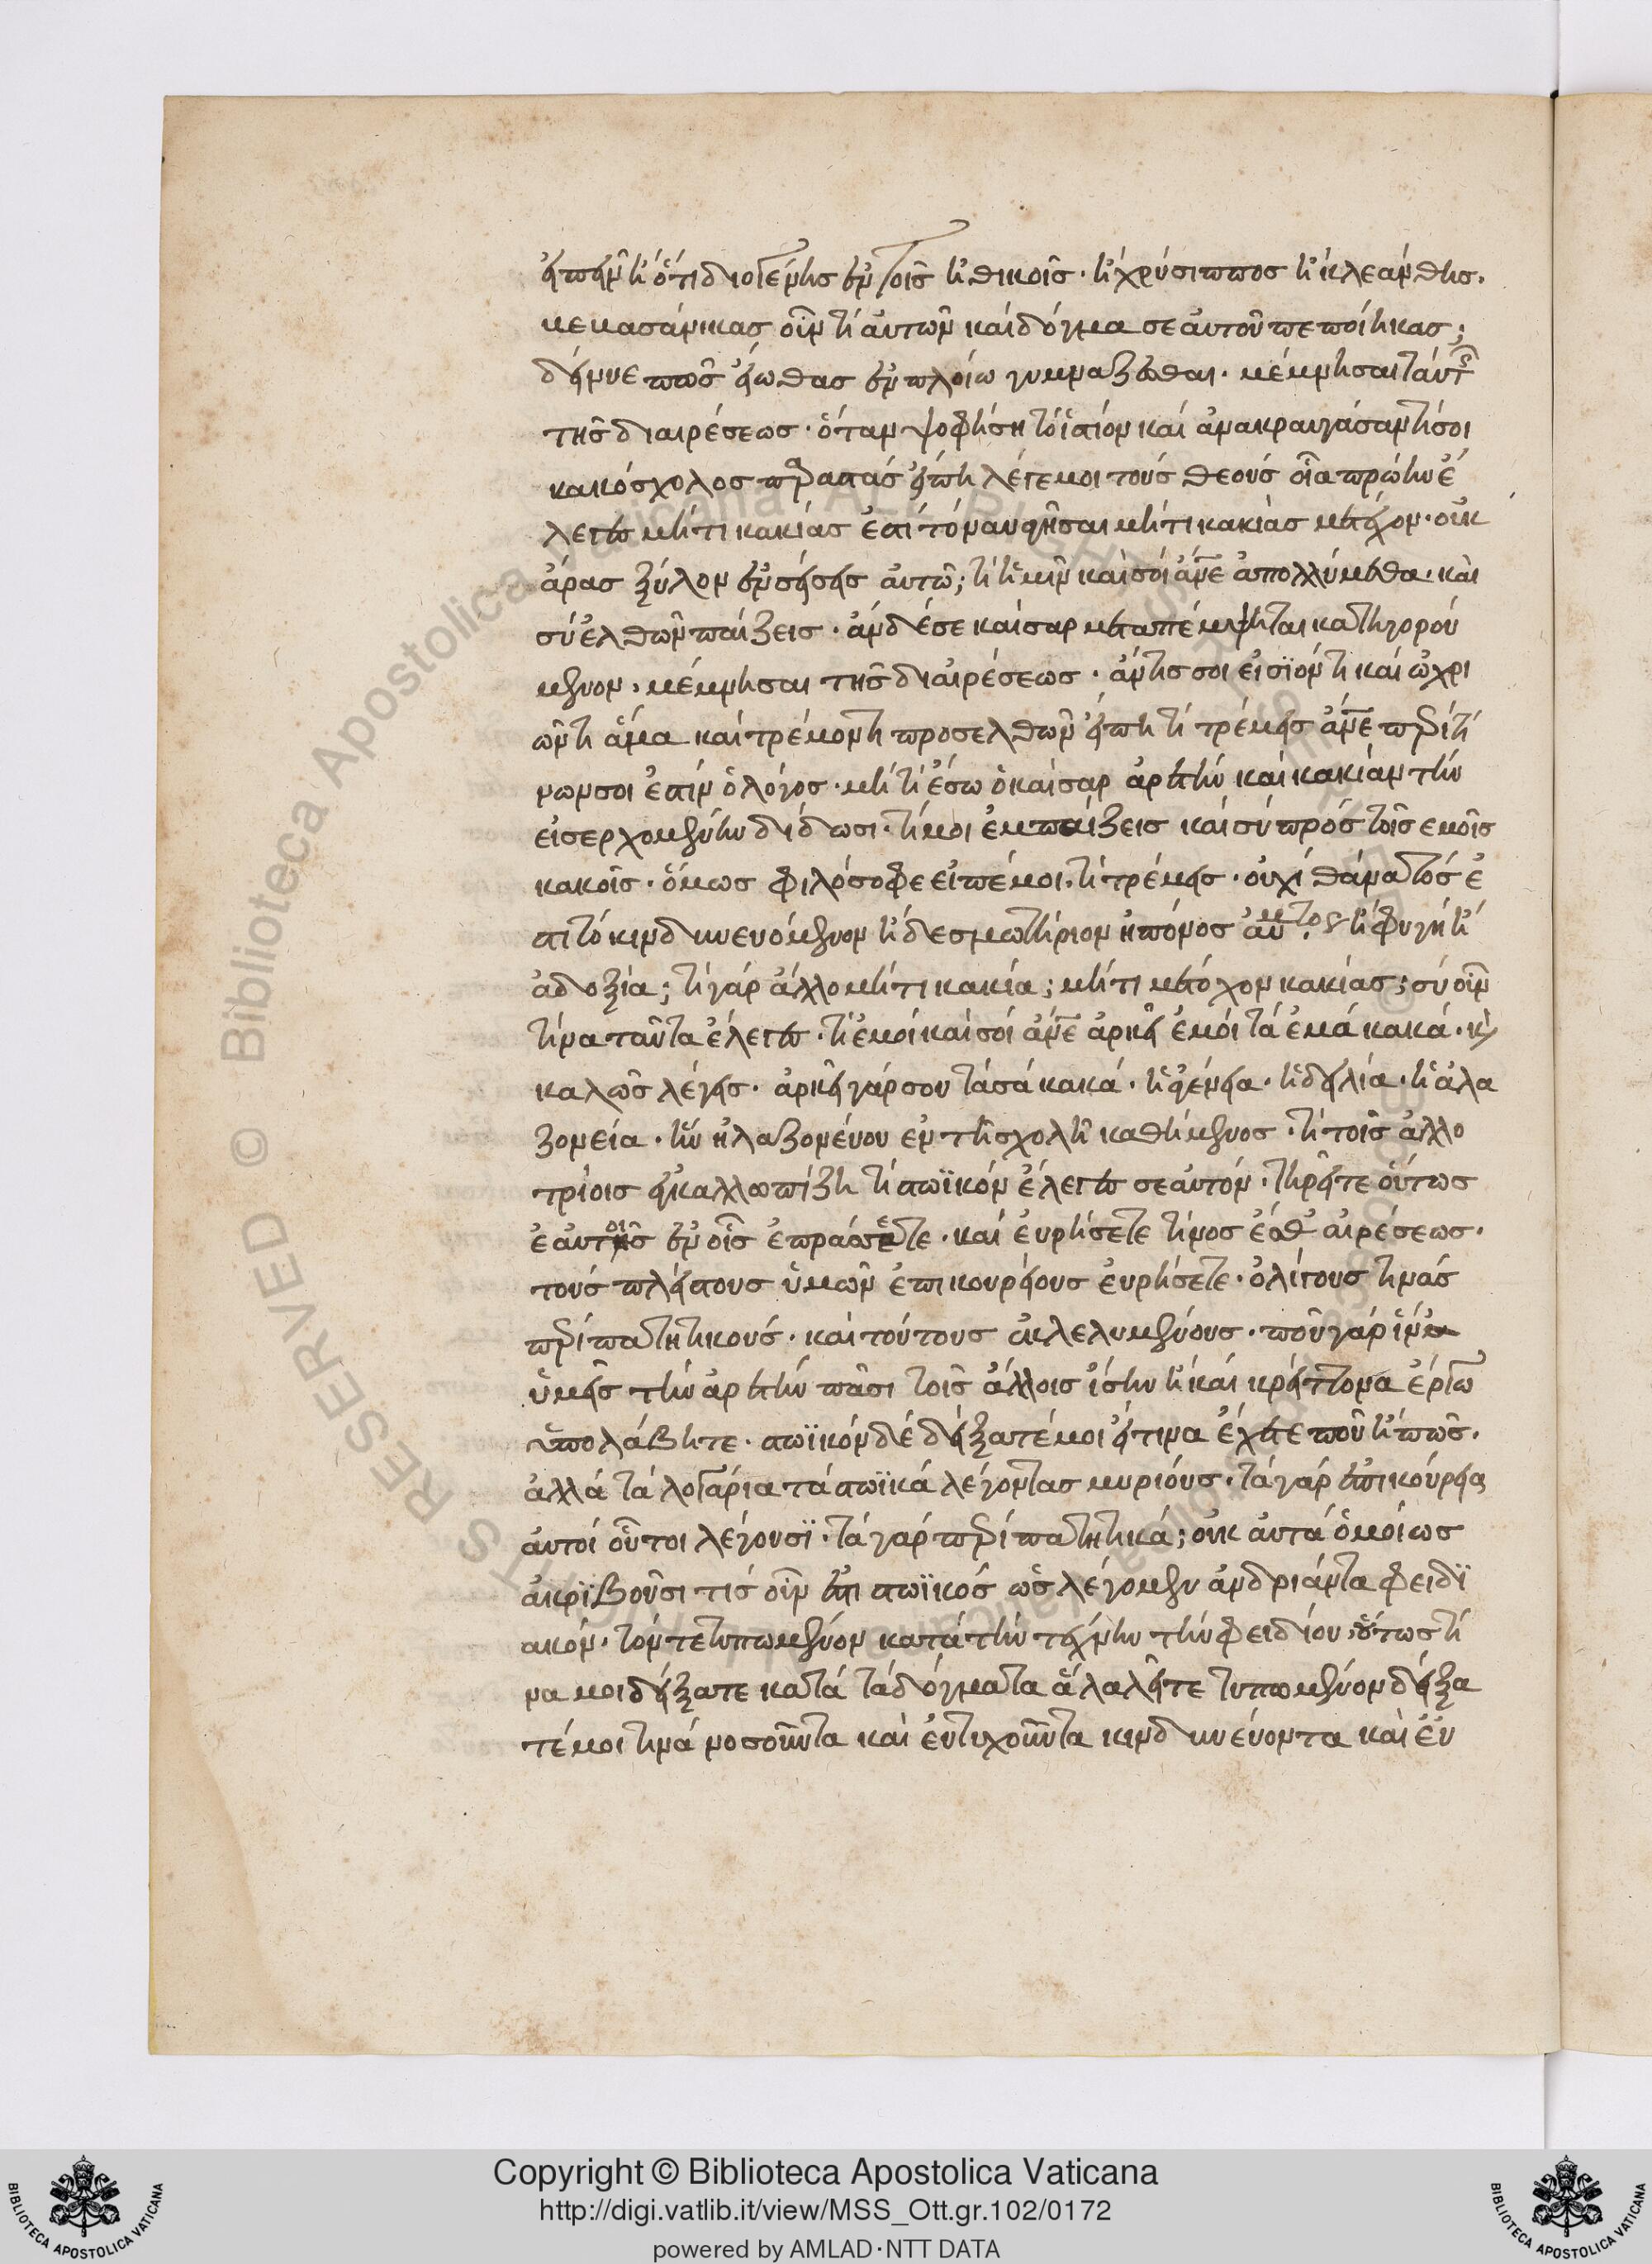 εἶπεν ἢ ὅτι διογένης ἐν τοῖς ἠθικοῖς· ἢ χρύσιππος ἢ κλεάνθης·
βεβασάνικας οὖν τί αὐτῶν καὶ δόγμα σεαυτοῦ πεποίηκας;
δείκνυε πῶς εἴωθας ἐν πλοίω γυμνάζεσθαι· μέμνησαι ταύτης
τῆς διαιρέσεως· ὅταν ψοφήση τὸ ἱστίον καὶ ἀνακραυγάσαντί σοι
κακόσχολος παραστὰς εἴπη λέγε μοι τοὺς θεοὺς οἷα πρώην ἔ
λεγες μήτι κακίας ἐστὶ τὸ ναυαγῆσαι μήτι κακίας μετέχον· οὐκ
ἄρας ξύλον ἐνσείσεις αὐτῶ; τί ἡμῖν καὶ σοὶ ἄνθρωπε ἀπολλύμεθα· καὶ
σὺ ἐλθὼν παίζεις· ἂν δέ σε καῖσαρ μεταπέμψηται κατηγορού
μενον· μέμνησαι τῆς διαιρέσεως· ἄν τις σοι εἰσϊόντι καὶ ὠχρι
ῶντι ἅμα καὶ τρέμοντι προσελθὼν εἴπη τί τρέμεις ἄνθρωπε περὶ τί
νων σοι ἐστὶν ὁ λόγος· μή τι ἔσω ὁ καῖσαρ ἀρετὴν καὶ κακίαν τὴν
εἰσερχομένην δίδωσι· τί μοι ἐμπαίζεις καὶ σὺ πρὸς τοῖς εμοῖς
κακοῖς· ὅμως φιλόσοφε εἰπέ μοι· τί τρέμεις· οὐχὶ θάνατός ἐ
στι τὸ κινδυνευόμενον ἢ δεσμωτήριον ἢ πόνος ἢ φυγὴ ἢ
ἀδοξία; τί γὰρ ἄλλο μήτι κακία; μήτι μετόχον κακίας; σὺ οὖν
τίνα ταῦτα ἔλεγες· τί ἐμοὶ καὶ σοὶ ἄνθρωπε ἀρκεῖ ἐμοὶ τὰ ἐμὰ κακά· καὶ
καλῶς λέγεις· ἀρκεῖ γάρ σου τὰ σὰ κακά· ἡ ἀγένεια· ἡ δειλία· ἡ ἀλα
ζονεία· ἣν ἠλαζονεύου εν τῆ σχολῆ καθήμενος· τί τοῖς ἀλλο
τρίοις ἐκαλλωπίζη τί στωϊκὸν ἔλεγες σεαυτόν· τηρεῖτε οὕτως
ἑαυτοὺς ἐν οἷς ἐπράσσετε· καὶ εὑρήσετε τίνος ἔσθ αἱρέσεως·
τοὺς πλείστους ὑμῶν ἐπικουρείους εὑρήσετε· ὀλίγους τινὰς
περιπατητικούς· καὶ τούτους ἐκλελυμένους· ποῦ γὰρ ἵν
ὑμεῖς τὴν ἀρετὴν πᾶσι τοῖς ἄλλοις ἴσην ἢ καὶ κρείττονα ἔργω
ὑπολάβητε· στωϊκὸν δὲ δείξατέ μοι εἴ τινα ἔχετε ποῦ ἢ πῶς·
ἀλλὰ τὰ λογάρια τὰ στωϊκὰ λέγοντας μυρίους· τὰ γὰρ ἐπικούρεια
αὐτοὶ οὗτοι λέγουσϊ· τὰ γὰρ περιπατητικά; οὐκ αὐτὰ ὁμοίως
ἀκρϊβοῦσι τίς οὖν ἐστι στωϊκός ὡς λέγομεν ἀνδριάντα φειδϊ
ακόν· τὸν τετυπωμένον κατὰ τὴν τέχνην τὴν φειδίου· οὕτως τί
να μοι δείξατε κατὰ τὰ δόγματα ἃ λαλεῖτε τυπωμένον δείξα
τέ μοι τινὰ νοσοῦντα καὶ εὐτυχοῦντα κινδυνεύοντα καὶ εὐ
Copyright © Biblioteca Apostolica Vaticana
http://digi.vatlib.it/view/MSS_Ott.gr.102/0172
powered by AMLAD·NTT DATA